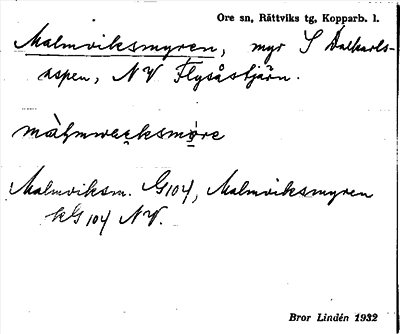 Ore sn, Rättviks tg, Kopparb. l.
Malmviksmyren, myr S Dalkarls-
aspen, NV Flysåstjärn.
Malmviksm. G104, Malmviksmyren
kG104 NV.
Bror Lindén 1932